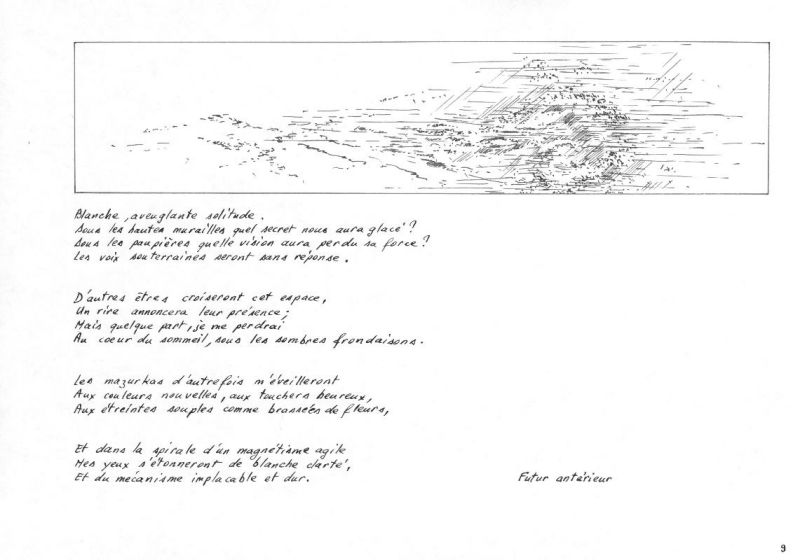 Blanche, aveuglante solitude.
Sous les hautes murailles quel secret nous aura glacé ?
Sous les paupières quelle vision aura perdu sa force ?
Les voix souterraines seront sans réponse.
D'autres êtres croiseront cet espace,
Un rire annoncera leur présence ;
Mais quelque part, je me perdrai
Au coeur du sommeil, sous les sombres frondaisons.
Les mazurkas d'autrefois m'éveilleront
Aux couleurs nouvelles, aux touchers heureux,
Aux étreintes souples comme brassées de fleurs,
Et dans la spirale d'un magnétisme agile
Mes yeux s'étonneront de blanche clarté,
Et du mécanisme implacable et dur.
Futur antérieur
9